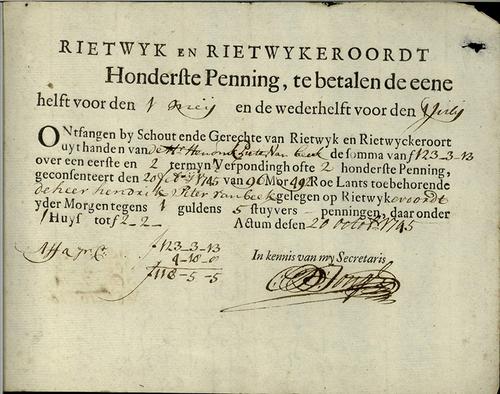 RIETWYK EN RIETWYKEROORDT
Honderste Penning, te betalen de eene
helft voor den 1 meij en de wederhelft voor den
ONtfangen by Schout ende Gerechte van Rietwyk en Rietwyckeroort
uyt handen van de Hr Hendrik Pieter Van beek de somma van f123-3-13
over een eerste en 2 termyn Verpondinghofte 2 honderste Penning,
geconsenteert den 20 1745 van 96 Mor 492 Roe Lants toebehorende
de heer hendrik Pieter van beek gelegen op Rietwykeroordt
yder Morgen tegens 1 guldens 5 stuyvers - penningen, daar onder
1 Huys tot f2-2- Actum desen 20 octob 1745
Aff f123-3-13
4-18-8
f118-5-5
In kennis van my Secretaris